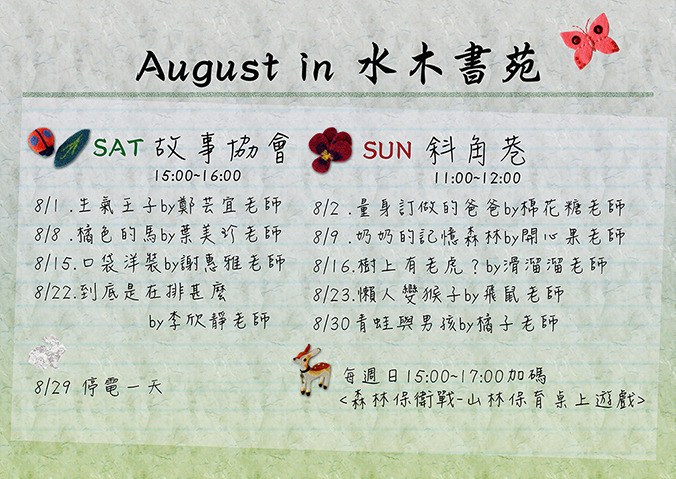 August in 水木書苑
SAT 故事協會
15:00~16:00
8/1 .生氣王子by鄭芸宜老師
8/8 .橘色的馬by葉美珍老師
8/15.口袋洋裝by謝惠雅老師
8/22.到底是在排甚麼
by李欣靜老師
8/29 停電一天
SUN 斜角巷
11:00~12:00
8/2 .量身訂做的爸爸by棉花糖老師
8/9 .奶奶的記憶森林by開心果老師
8/16.樹上有老虎？by滑溜溜老師
8/23.懶人變猴子by飛鼠老師
8/30 青蛙與男孩by橘子老師
每週日15:00~17:00加碼
<森林保衛戰-山林保育桌上遊戲>